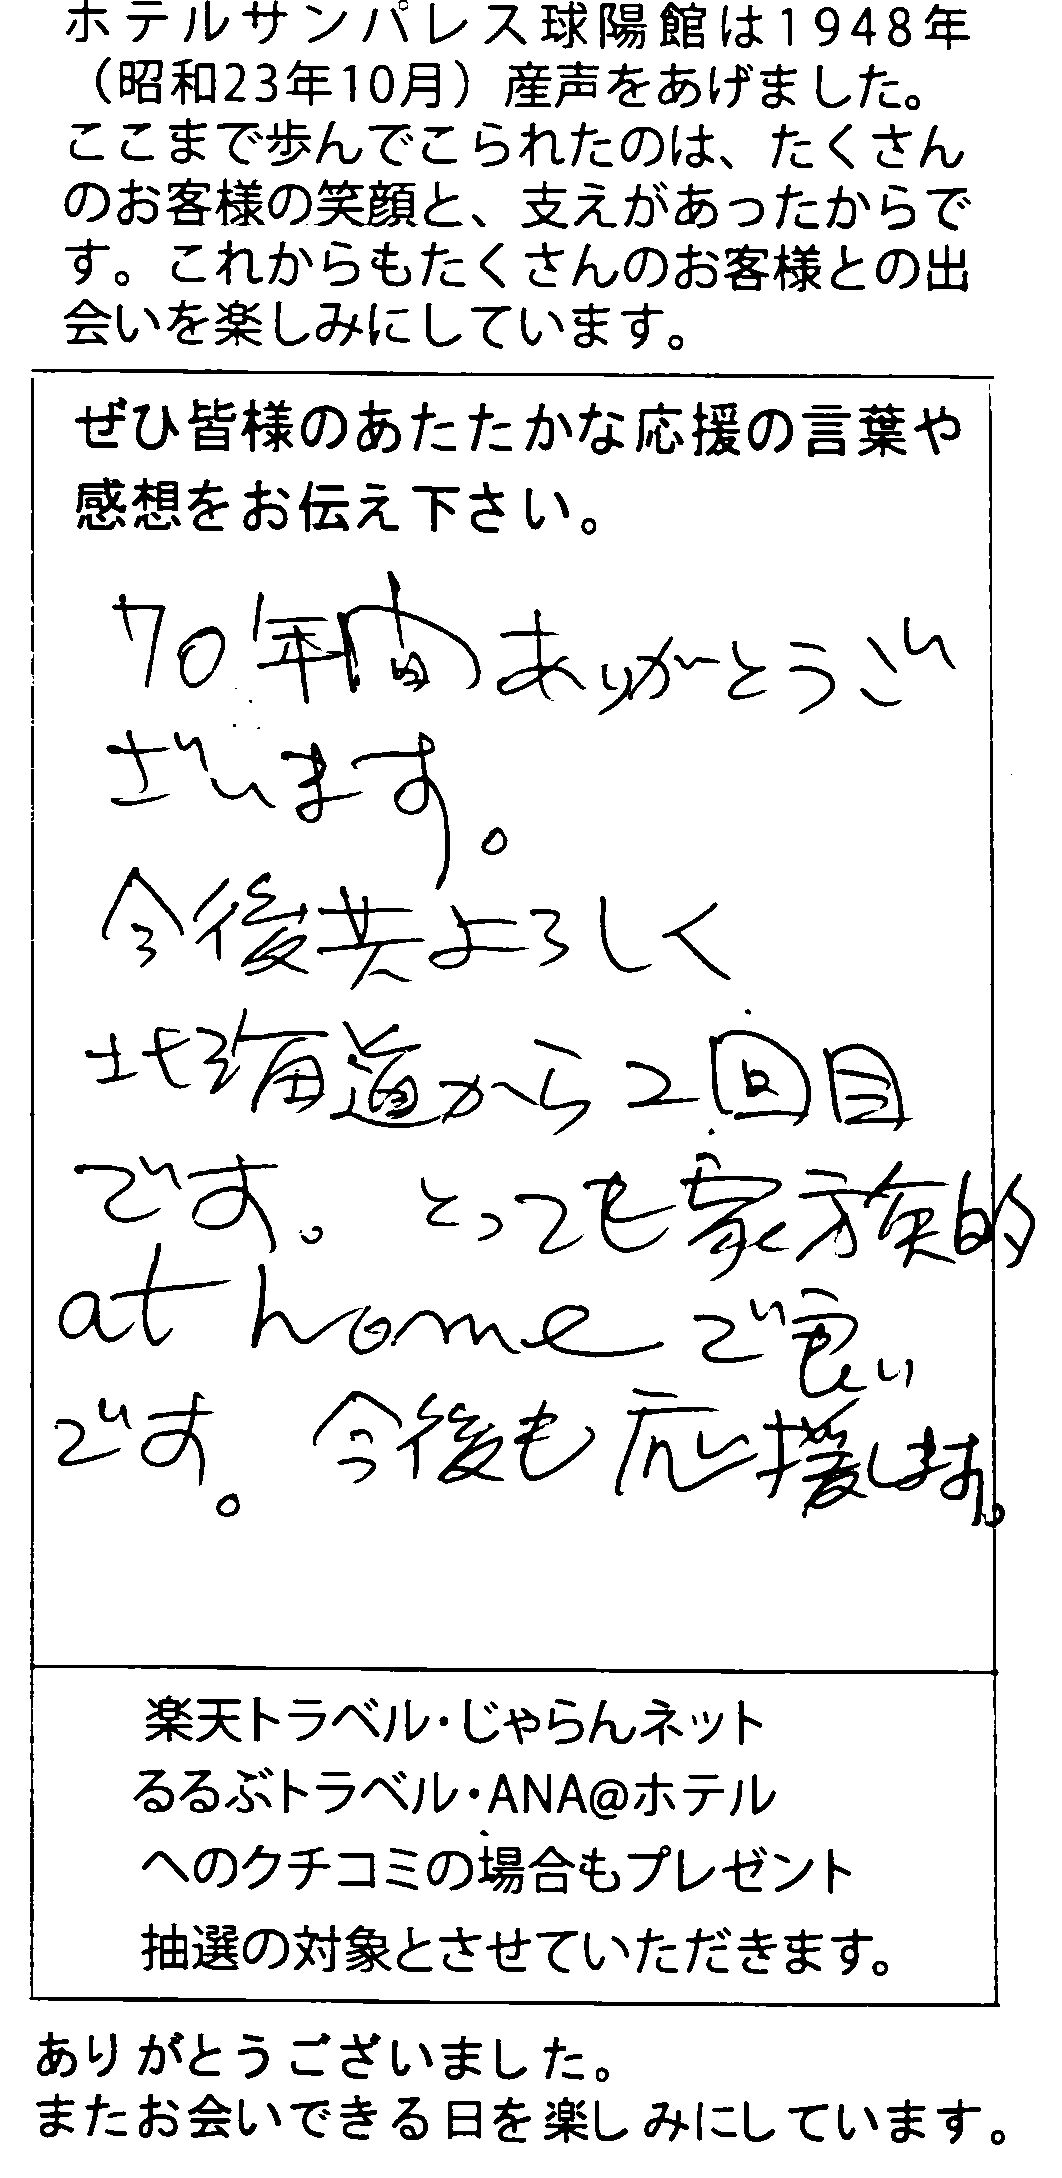 ホテルサンパレス球陽館は1948年
（昭和23年10月）産声をあげました。
ここまで歩んでこられたのは、たくさん
のお客様の笑顔と、支えがあったからで
す。これからもたくさんのお客様との出
会いを楽しみにしています。
ぜひ皆様のあたたかな応援の言葉や
感想をお伝え下さい。
70年間ありがとうご
ざいます。
今後共よろしく
北海道から2回目
です。とっても家族的
at homeで良い
です。今後も応援します。
楽天トラベル・じゃらんネット
るるぶトラベル・ANA@ホテル
へのクチコミの場合もプレゼント
抽選の対象とさせていただきます。
ありがとうございました。
またお会いできる日を楽しみにしています。